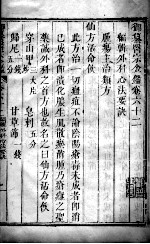 御纂醫宗金鑑卷六十二
編輯外科心法要訣
腫瘍主治類方
仙方活命飲
此方治一切瘡瘍未成者即消
已成者即潰化膿生肌散瘀消腫乃瘡癰之聖
藥誠外科之首方也故名之曰仙方活命飲
穿山甲 三大片 皂刺 五分
歸尾 一錢 五分 甘草節 一錢